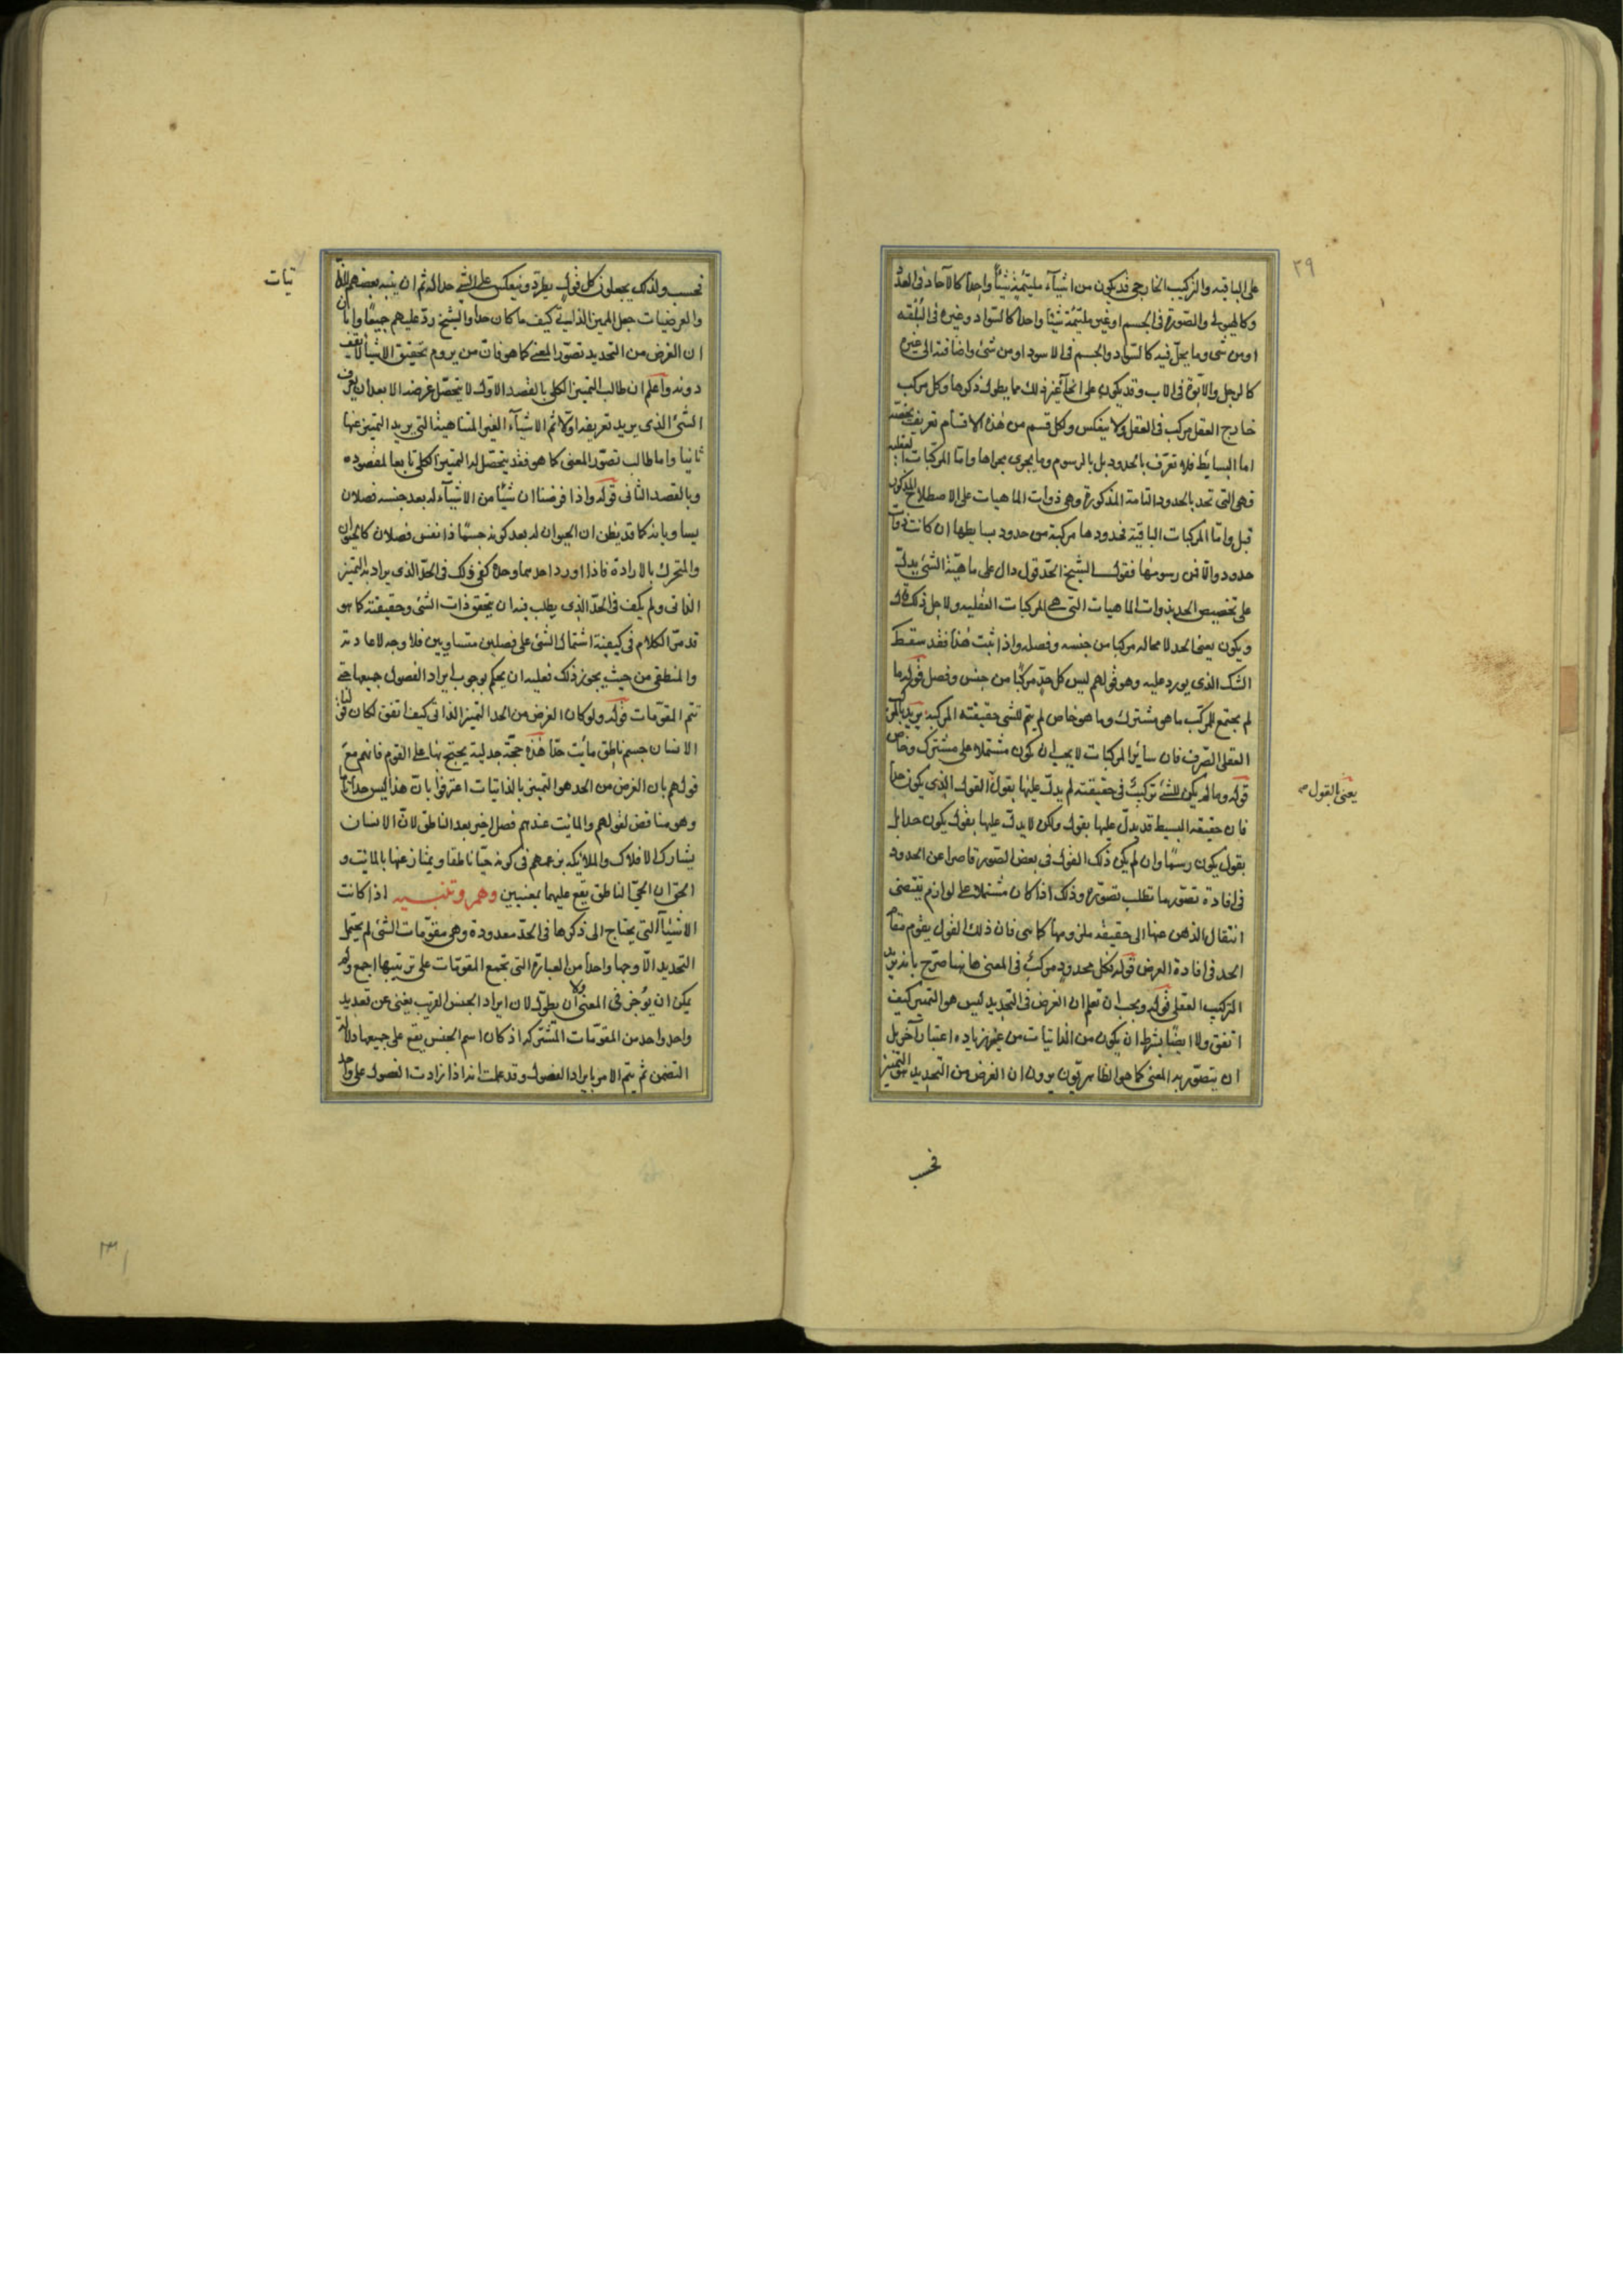 ٢٩
على الباقيه والتركيب الخارجى قد يكون من اشيآء ملتئمة شيئًا واحدًا كالآحاد فى العدد
وكالهيولى والصّورة فى الجسم او غير ملتئمة شيئا واحدًا كالسّواد وغيره فى البُلقه
او من شىء وما يحلّ فيه كالسّواد والجسم فى الاسود او من شىء واضافته الى غيره
كالرجل والابوّة فى الاب وقد يكون على انحآء غير ذلك مما يطول ذكرها وكل مركب
خارج العقل مركب فى العقل ولا ينعكس ولكل قسم من هذه الاقسام تعريف يخصّه
اما البسايط فلا تعرّف بالحدود بل بالرسوم وما يجرى مجراها وامّا المركبات العقلية
فهى التى تحد بالحدود التامة المذكورة وهى ذوات الماهيات على الاصطلاح المذكور
قبل وامّا المركبات الباقية فحدودها مركبة من حدود بسايطها ان كانت ذوات
حدود والّا فمن رسومها فقول الشيخ الحدّ قول دال على ماهيّة الشئ يدلّ
على تخصيص الحد بذوات الماهيات التى هى المركبات العقليه ولاجل ذلك قال
ويكون يعنى الحد لا محاله مركبا من جنسه وفصله واذا ثبت هذا فقد سقط
الشك الذى يورد عليه وهو قولهم ليس كل حدّ مركبًا من جنس وفصل قوله ما
لم يجتمع للمركّب ما هو مشترك وما هو خاص لم يتم للشى حقيقته المركبة يريد بالمركب
العقلى الصّرف فان ساير المركبات لا يجب ان يكون مشتملا على مشترك وخاصّ
قوله وما لم يكن للشئ تركيبٌ فى حقيقته لم يدلّ عليها بقول القول الذى يكون حدا
يعنى القول
فان حقيقه البسيط قد يدلّ عليها بقول ولكن لا يدلّ عليها بقول يكون حدا بل
بقول يكون رسمًا وان لم يكن ذلك القول فى بعض الصّور قاصرا عن الحدود
فى افادة تصوّر ما تطلب تصوّره وذلك اذا كان مشتملا على لوازم يقتضى
انتقال الذهن عنها الى حقيقة ملزومها كما هى فان ذلك القول يقوم مقام
الحد فى افادة الغرض قوله فكل محدود مركبٌ فى المعنى ها هنا صرّح بانه يريد
التركيب العقلى قوله ويجب ان تعلم ان الغرض فى التحديد ليس هو التمييز كيف
اتفق ولا ايضًا بشرط ان يكون من الذاتيات من غير زياده اعتبار آخر بل
ان يتصوّر به المعنى كما هو الظاهريّون يرون ان الغرض من التحديد هو التمييز
فحسب
فحسب ولذلك يجعلون كل قول يطرّد وينعكس على الشئ حدا له ثم ان ينبه بعضهم للذا
تيات
والعرضيات جعل المميز الذاتى كيف ما كان حدا والشيخ ردّ عليهم جميعًا وابان
ان الغرض من التحديد تصوّر المعنى كما هو فانّ من يروم تحقيق الاشيآء لا يقف
دونه واعلم ان طالب التمييز الكلى بالقصد الاوّل لا يتحصّل غرضه الا بعد ان يعرف
الشئ الذى يريد تعريفه اوّلا ثم الاشيآء الغير المتناهية التى يريد التمييز عنها
ثانيا واما طالب تصوّر المعنى كما هو فقد يتحصّل له التمييز الكلى تابعا لمقصوده
وبالقصد الثانى قوله واذا فرضنا ان شيئًا من الاشيآء له بعد جنسه فصلان
يساويانه كما قد يظن ان الحيوان له بعد كونه جسمًا ذا نفس فصلان كالحسّاس
والمتحرك بالارادة فاذا اورد احدهما وحده كفى ذلك فى الحدّ الذى يراد به التميز
الذاتى ولم يكف فى الحدّ الذى يطلب فيه ان يتحقق ذات الشئ وحقيقته كما هو
قد مرّ الكلام فى كيفية اشتمال الشئ على فصلين متساويين فلا وجه لاعادته
والمنطقى من حيث يجوز ذلك فعليه ان يحكم بوجوب ايراد الفصول جميعها حتى
تتم المقوّمات قوله ولو كان الغرض من الحد التميز الذاتى كيف اتفق لكان قولنا
الانسان جسم ناطق مائت حدّا هذه حجّة جدلية يحتج بها على القوم فانهم مع
قولهم بان الغرض من الحد هو التميز بالذاتيات اعترفوا بانّ هذا ليس حدا تامّا
وهو مناقض لقولهم والمائت عندهم فصل اخير بعد الناطق لانّ الانسان
يشارك الافلاك والملائكه بزعمهم فى كونه حيّا ناطقا ويمتاز عنها بالمائت و
الحق ان الحىّ الناطق يقع عليهما بمعنيين وهم وتنبيه اذا كانت
الاشيآء التى يحتاج الى ذكرها فى الحدّ معدودة وهى مقوّمات الشئ لم يحتمل
التحديد الّا وجها واحدا من العبارة التى تجمع المقوّمات على ترتيبها اجمع ولم
يمكن ان يوجز فى المعنى ولا ان يطوّل لان ايراد الجنس القريب يغنى عن تعديد
واحد واحد من المقوّمات المشتركه اذ كان اسم الجنس يقع على جميعها دلالة
التضمن ثم يتم الامر بايراد الفصول وقد علمت انه اذا زادت الفصول على واحد